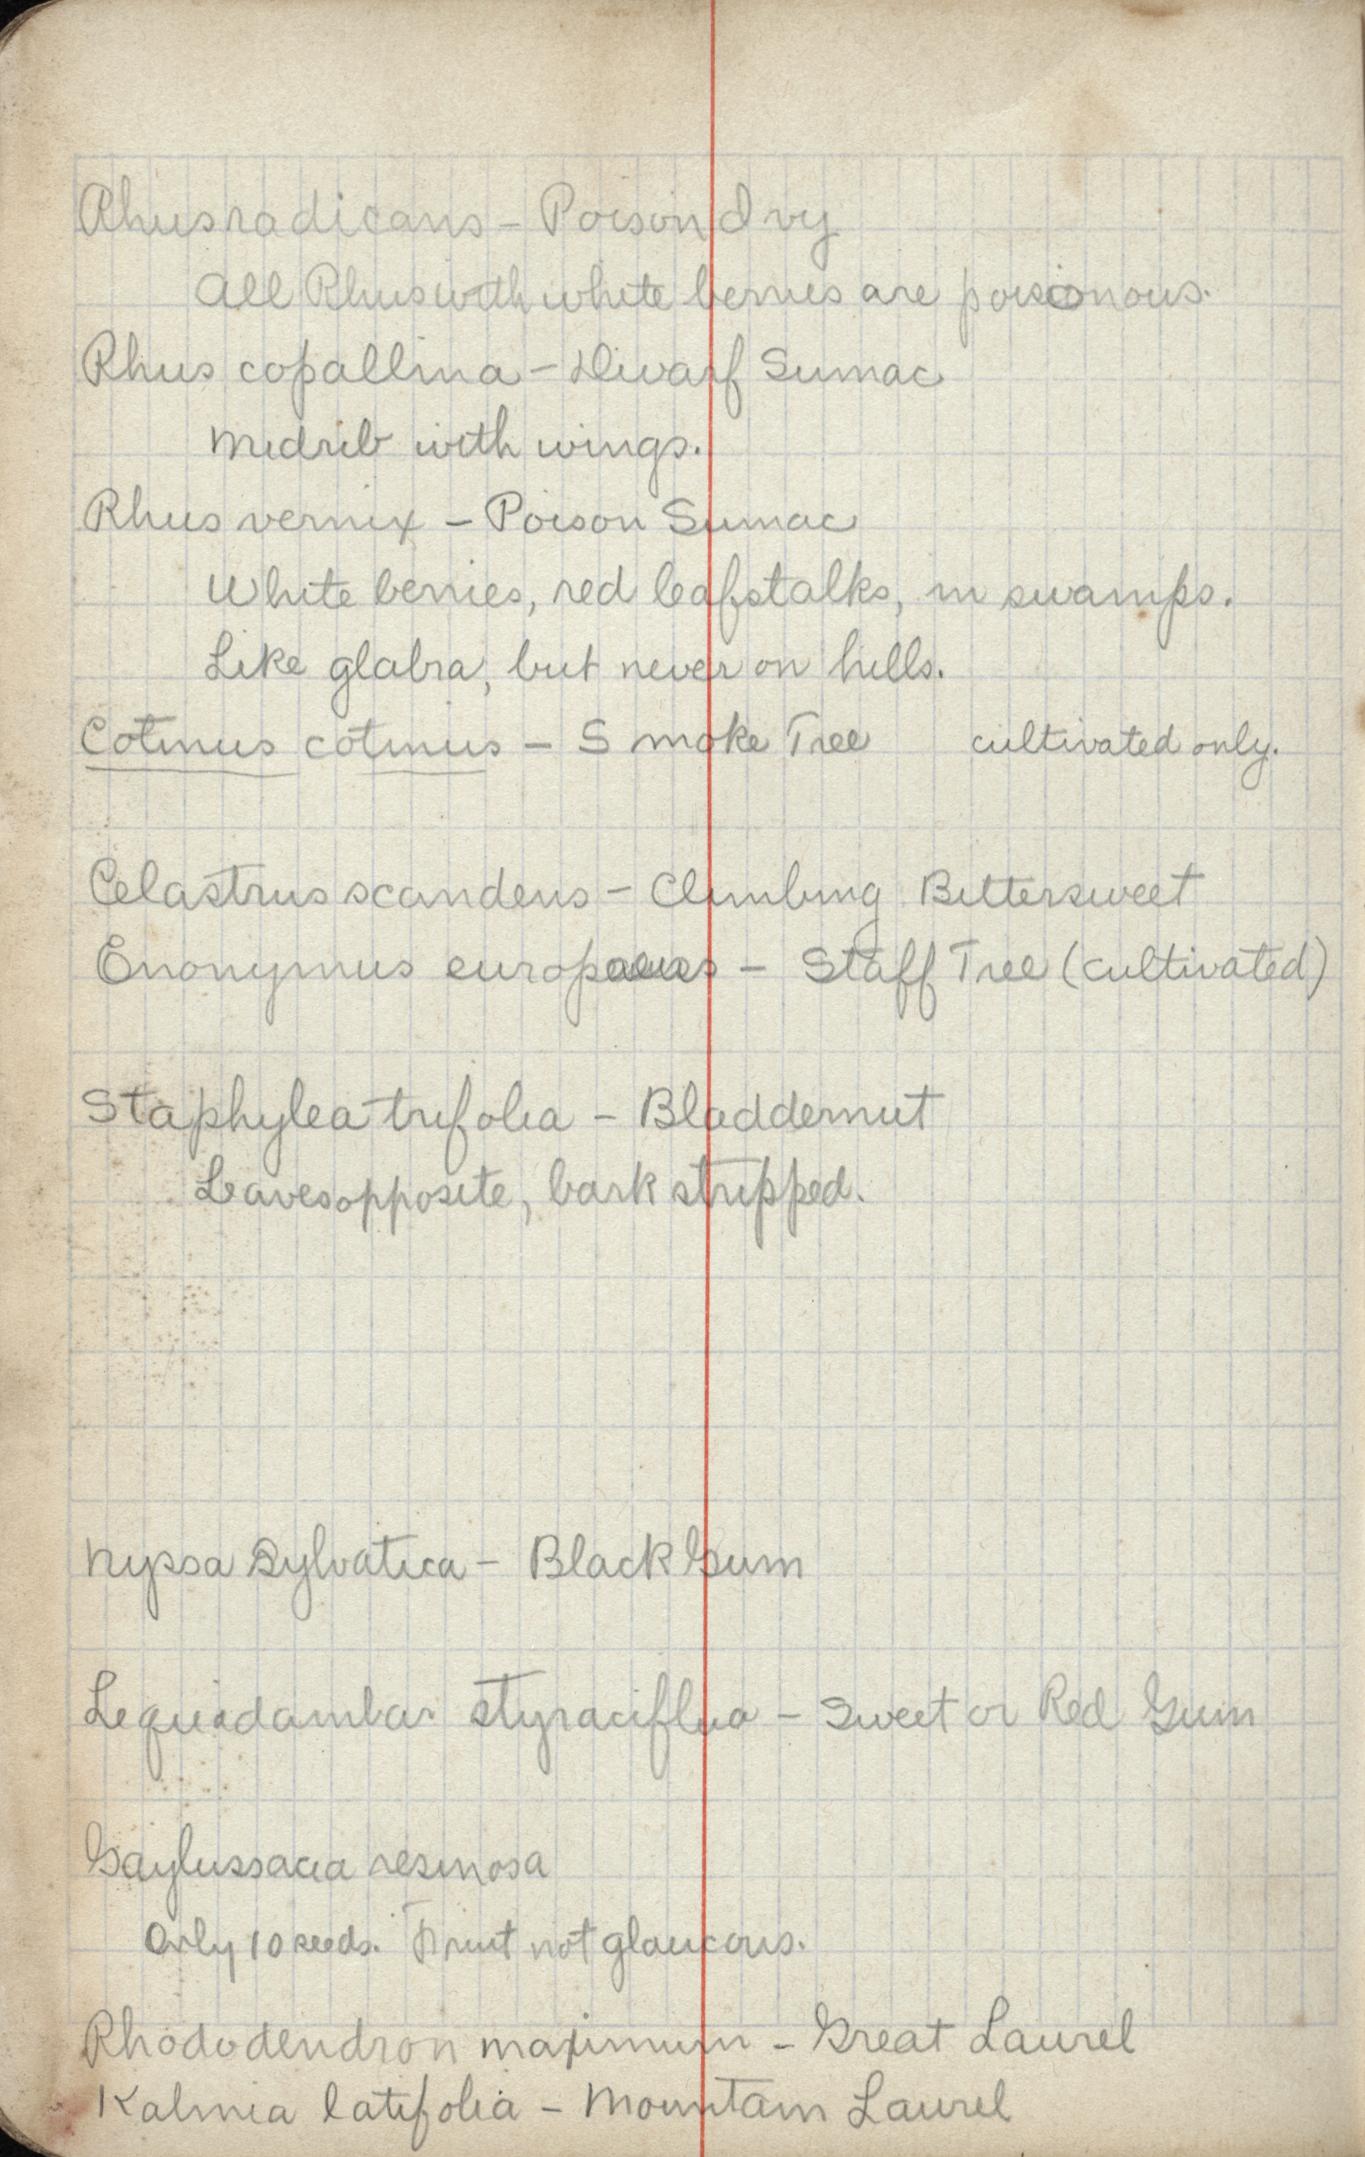 Rhus radicans - Poison Ivy
All Rhus with white berries are poisonous.
Rhus copallina - Dwarf Sumac
Midrib with wings.
Rhus vernix - Poison Sumac
White berries, red leafstalks, in swamps.
Like glabra, but never on hills.
Cotinus cotinus - Smoke Tree cultivated only.
Celastrus scandens - Climbing Bittersweet
Enonymus europaeus - Staff Tree (cultivated)
Staphylea trifolia - Bladdernut
Leaves opposite, bark stripped.
Nyssa Sylvatica - Black Gum
Liquidambar styraciflua - Sweet or Red Gum
Gaylussacia resinosa
Only 10 seeds. Fruit not glaucous.
Rhododendron maximum - Great Laurel
Kalmia latifolia - Mountain Laurel